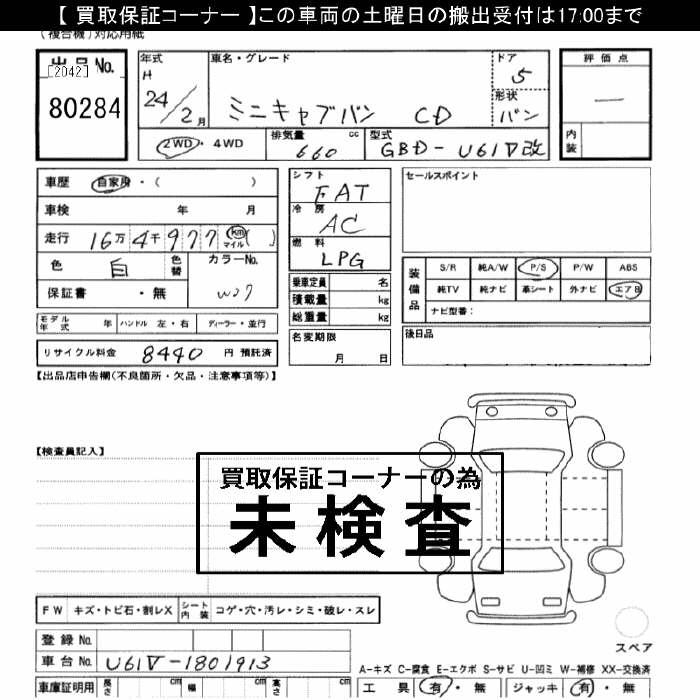 【 買取保証コーナー 】この車両の土曜日の搬出受付は17:00まで
(複合機)対応用紙
出品No.
[2042]
80284
年式
H
24/2月
車名・グレード
ミニキャブバン CD
ドア
5
形状
バン
評価点
―
内装
2WD・4WD
排気量 cc
660
型式
GBD-U61V改
車歴 自家用・( )
車検 年 月
走行 16万4千977 km マイル ( )
色 白 色替 カラーNo.
W07
保証書 ・ 無
シフト
FAT
冷房
AC
燃料
LPG
セールスポイント
装備品
S/R 純A/W P/S P/W ABS
純TV 純ナビ 革シート 外ナビ エアB
ナビ型番:
乗車定員 名
積載量 kg
総重量 kg
モデル年式 年 ハンドル 左・右 ディーラー・並行
名変期限
月 日
後日品
リサイクル料金 8440 円 預託済
【出品店申告欄(不良箇所・欠品・注意事項等)】
【検査員記入】
買取保証コーナーの為
未検査
FW キズ・トビ石・割レX シート内装 コゲ・穴・汚レ・シミ・破レ・スレ
スペア
登録No.
車台No. U61V-1801913
A-キズ C-腐食 E-エクボ S-サビ U-凹ミ W-補修 XX-交換済
車庫証明用 長さ cm 幅 cm 高さ cm
工具 有・無 ジャッキ 有・無